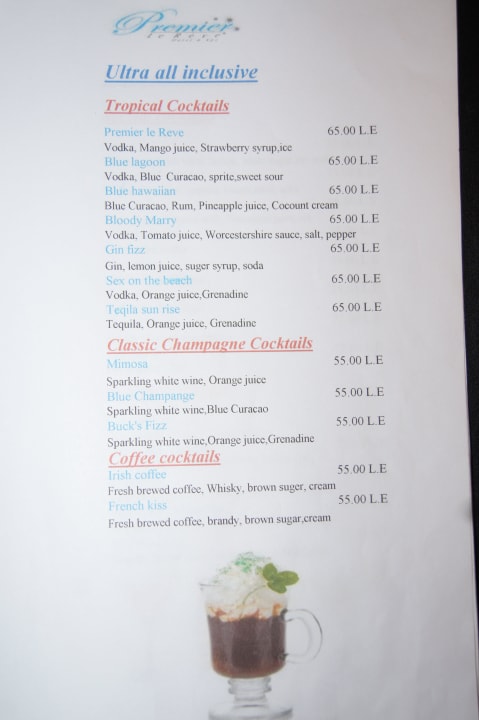 Premier
le Reve
Ultra all inclusive
Tropical Cocktails
Premier le Reve 65.00 L.E
Vodka, Mango juice, Strawberry syrup,ice
Blue lagoon 65.00 L.E
Vodka, Blue Curacao, sprite,sweet sour
Blue hawaiian 65.00 L.E
Blue Curacao, Rum, Pincapple juice, Cocount cream
Bloody Marry 65.00 L.E
Vodka, Tomato juice, Worcestershire sauce, salt, pepper
Gin fizz 65.00 L.E
Gin, lemon juice, suger syrup, soda
Sex on the beach 65.00 L.E
Vodka, Orange juice,Grenadine
Teqila sun rise 65.00 L.E
Tequila, Orange juice, Grenadine
Classic Champagne Cocktails
Mimosa 55.00 L.E
Sparkling white wine, Orange juice
Blue Champange 55.00 L.E
Sparkling white wine,Blue Curacao
Buck's Fizz 55.00 L.E
Sparkling white wine,Orange juice,Grenadine
Coffee cocktails
Irish coffee 55.00 L.E
Fresh brewed coffee, Whisky, brown suger, cream
French kiss 55.00 L.E
Fresh brewed coffee, brandy, brown sugar,cream